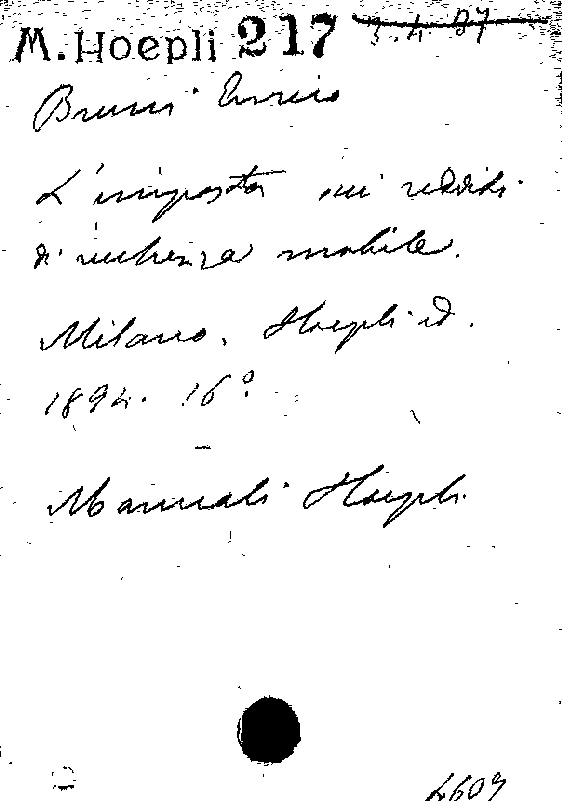 M. Hoepli 217 3.4.87
Bruni Enrico
L'imposta sui redditi
di ricchezza mobile.
Milano, Hoepli ed.
1894. 16º
Manuali Hoepli
4607